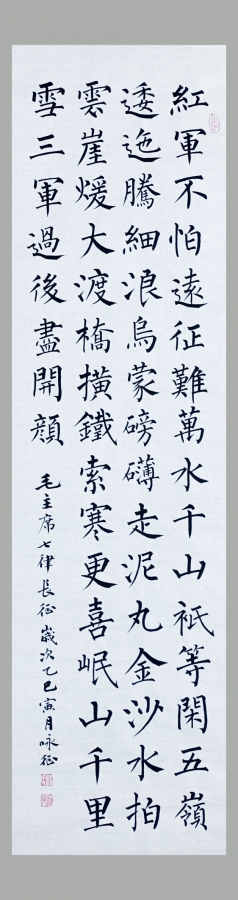 紅軍不怕遠征難萬水千山祇等閑五嶺
逶迤騰細浪烏蒙磅礴走泥丸金沙水拍
雲崖煖大渡橋橫鐵索寒更喜岷山千里
雪三軍過後盡開顔
毛主席七律長征歲次乙巳寅月咏征